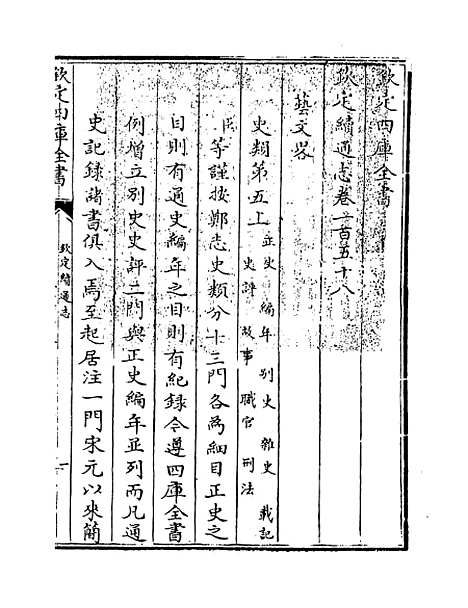 欽定四庫全書
欽定續通志卷一百五十八
藝文畧
史類第五上 正史 編年 别史 雜史 載記
史評 故事 職官 刑法
臣等謹按鄭志史類分十三門各為細目正史之
目則有通史編年之目則有紀録今遵四庫全書
例增立别史史評二門與正史編年並列而凡通
史記録諸書俱入焉至起居注一門宋元以來簡
欽定四庫全書
欽定續通志
一